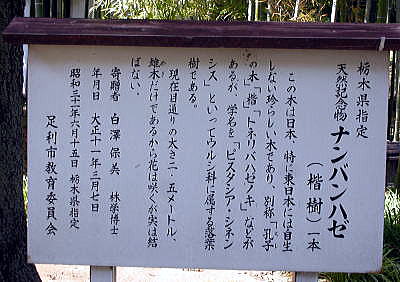 栃木県指定
天然記念物 ナンバンハゼ
(楷樹) 一本
この木は日本、特に東日本には自生
しない珍らしい木であり、別称「孔子
の木」「楷」「トネリバハゼノキ」などが
あるが、学名を「ピスタシア・シネン
シス」といってウルシ科に属する落葉
樹である。
現在目通りの大きさ一・五メートル、
雄木だけであるから花は咲くが実は結
ばない。
寄贈者 白澤保美 林学博士
年月日 大正十一年三月七日
昭和三十一年六月十五日 栃木県指定
足利市教育委員会